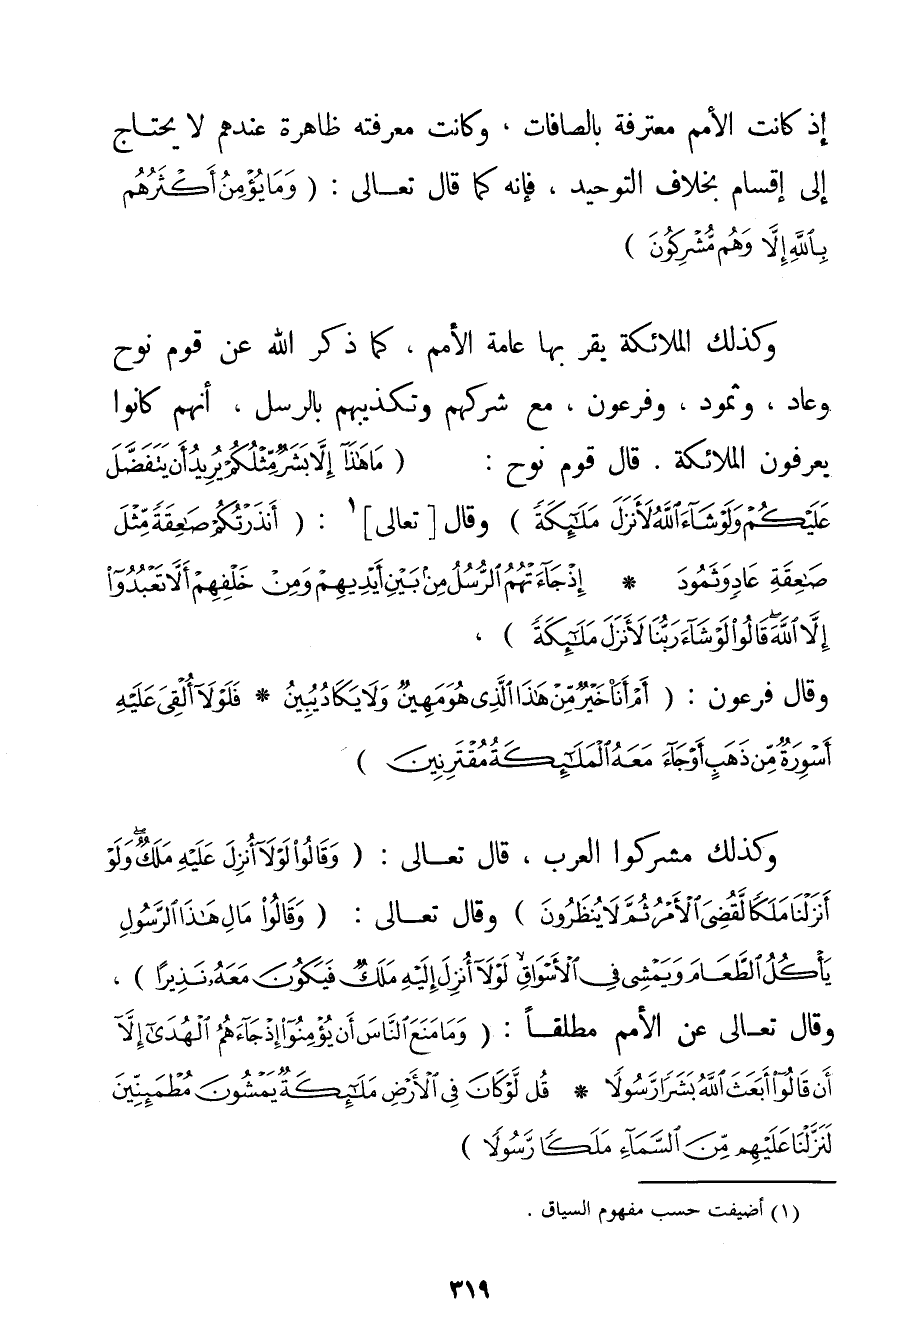 إذ كانت الأمم معترفة بالصافات ، وكانت معرفته ظاهرة عندهم لا يحتاج
إلى إقسام بخلاف التوحيد ، فإنه كما قال تعالى : ( وَمَا يُؤْمِنُ أَكْثَرُهُم
بِٱللَّهِ إِلَّا وَهُم مُّشْرِكُونَ )
وكذلك الملائكة يقر بها عامة الأمم ، كما ذكر الله عن قوم نوح
وعاد ، وثمود ، وفرعون ، مع شركهم وتكذيبهم بالرسل ، أنهم كانوا
يعرفون الملائكة . قال قوم نوح : ( مَا هَٰذَآ إِلَّا بَشَرٌ مِّثْلُكُمْ يُرِيدُ أَن يَتَفَضَّلَ
عَلَيْكُمْ وَلَوْ شَآءَ ٱللَّهُ لَأَنزَلَ مَلَٰٓئِكَةً ) وقال [ تعالى ]١ : ( أَنذَرْتُكُمْ صَٰعِقَةً مِّثْلَ
صَٰعِقَةِ عَادٍ وَثَمُودَ * إِذْ جَآءَتْهُمُ ٱلرُّسُلُ مِنۢ بَيْنِ أَيْدِيهِمْ وَمِنْ خَلْفِهِمْ أَلَّا تَعْبُدُوٓا۟
إِلَّا ٱللَّهَ ۖ قَالُوا۟ لَوْ شَآءَ رَبُّنَا لَأَنزَلَ مَلَٰٓئِكَةً ) ،
وقال فرعون : ( أَمْ أَنَا۠ خَيْرٌ مِّنْ هَٰذَا ٱلَّذِى هُوَ مَهِينٌ وَلَا يَكَادُ يُبِينُ * فَلَوْلَآ أُلْقِىَ عَلَيْهِ
أَسْوِرَةٌ مِّن ذَهَبٍ أَوْ جَآءَ مَعَهُ ٱلْمَلَٰٓئِكَةُ مُقْتَرِنِينَ )
وكذلك مشركوا العرب ، قال تعالى : ( وَقَالُوا۟ لَوْلَآ أُنزِلَ عَلَيْهِ مَلَكٌ ۖ وَلَوْ
أَنزَلْنَا مَلَكًا لَّقُضِىَ ٱلْأَمْرُ ثُمَّ لَا يُنظَرُونَ ) وقال تعالى : ( وَقَالُوا۟ مَالِ هَٰذَا ٱلرَّسُولِ
يَأْكُلُ ٱلطَّعَامَ وَيَمْشِى فِى ٱلْأَسْوَاقِ ۙ لَوْلَآ أُنزِلَ إِلَيْهِ مَلَكٌ فَيَكُونَ مَعَهُۥ نَذِيرًا ) ،
وقال تعالى عن الأمم مطلقاً : ( وَمَا مَنَعَ ٱلنَّاسَ أَن يُؤْمِنُوٓا۟ إِذْ جَآءَهُمُ ٱلْهُدَىٰٓ إِلَّآ
أَن قَالُوٓا۟ أَبَعَثَ ٱللَّهُ بَشَرًا رَّسُولًا * قُل لَّوْ كَانَ فِى ٱلْأَرْضِ مَلَٰٓئِكَةٌ يَمْشُونَ مُطْمَئِنِّينَ
لَنَزَّلْنَا عَلَيْهِم مِّنَ ٱلسَّمَآءِ مَلَكًا رَّسُولًا )
(١) أضيفت حسب مفهوم السياق .
٣١٩